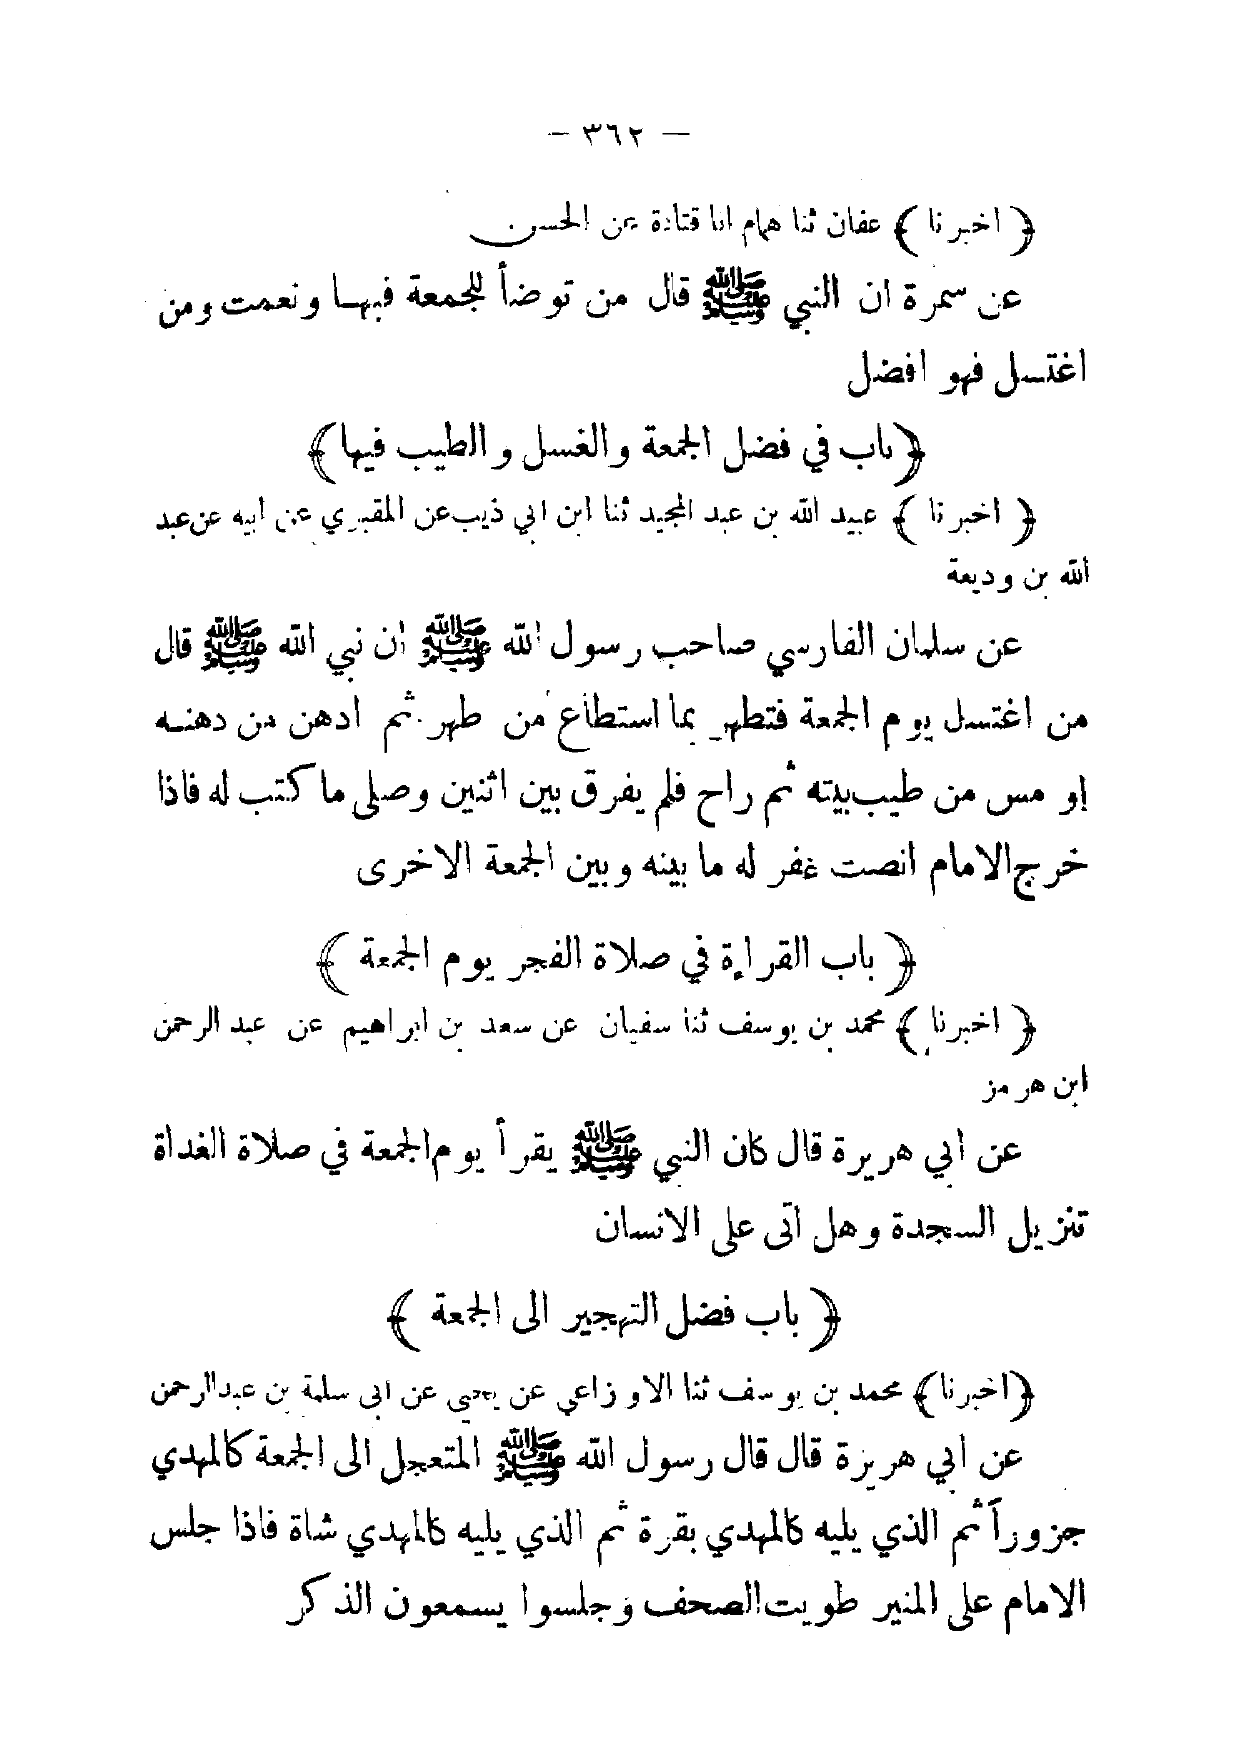 — ٣٦٢ —
﴿ اخبرنا ﴾ عفان ثنا همام انا قتادة عن الحسن
عن سمرة ان النبي ﷺ قال من توضأ للجمعة فبها ونعمت ومن
اغتسل فهو افضل
﴿باب في فضل الجمعة والغسل و الطيب فيها﴾
﴿ اخبرنا ﴾ عبيد الله بن عبد المجيد ثنا ابن ابي ذيب عن المقبري عن ابيه عن عبد
الله بن وديعة
عن سلمان الفارسي صاحب رسول الله ﷺ ان نبي الله ﷺ قال
من اغتسل يوم الجمعة فتطهر بما استطاع من طهر ثم ادهن من دهنه
او مس من طيب بيته ثم راح فلم يفرق بين اثنين وصلى ما كتب له فاذا
خرج الامام انصت غفر له ما بينه وبين الجمعة الاخرى
﴿ باب القراءة في صلاة الفجر يوم الجمعة ﴾
﴿ اخبرنا ﴾ محمد بن يوسف ثنا سفيان عن سعد بن ابراهيم عن عبد الرحمن
ابن هرمز
عن ابي هريرة قال كان النبي ﷺ يقرأ يوم الجمعة في صلاة الغداة
تنزيل السجدة وهل اتى على الانسان
﴿ باب فضل التهجير الى الجمعة ﴾
﴿اخبرنا﴾ محمد بن يوسف ثنا الاوزاعي عن يحيى عن ابي سلمة بن عبدالرحمن
عن ابي هريرة قال قال رسول الله ﷺ المتعجل الى الجمعة كالمهدي
جزوراً ثم الذي يليه كالمهدي بقرة ثم الذي يليه كالمهدي شاة فاذا جلس
الامام على المنبر طويت الصحف وجلسوا يسمعون الذكر